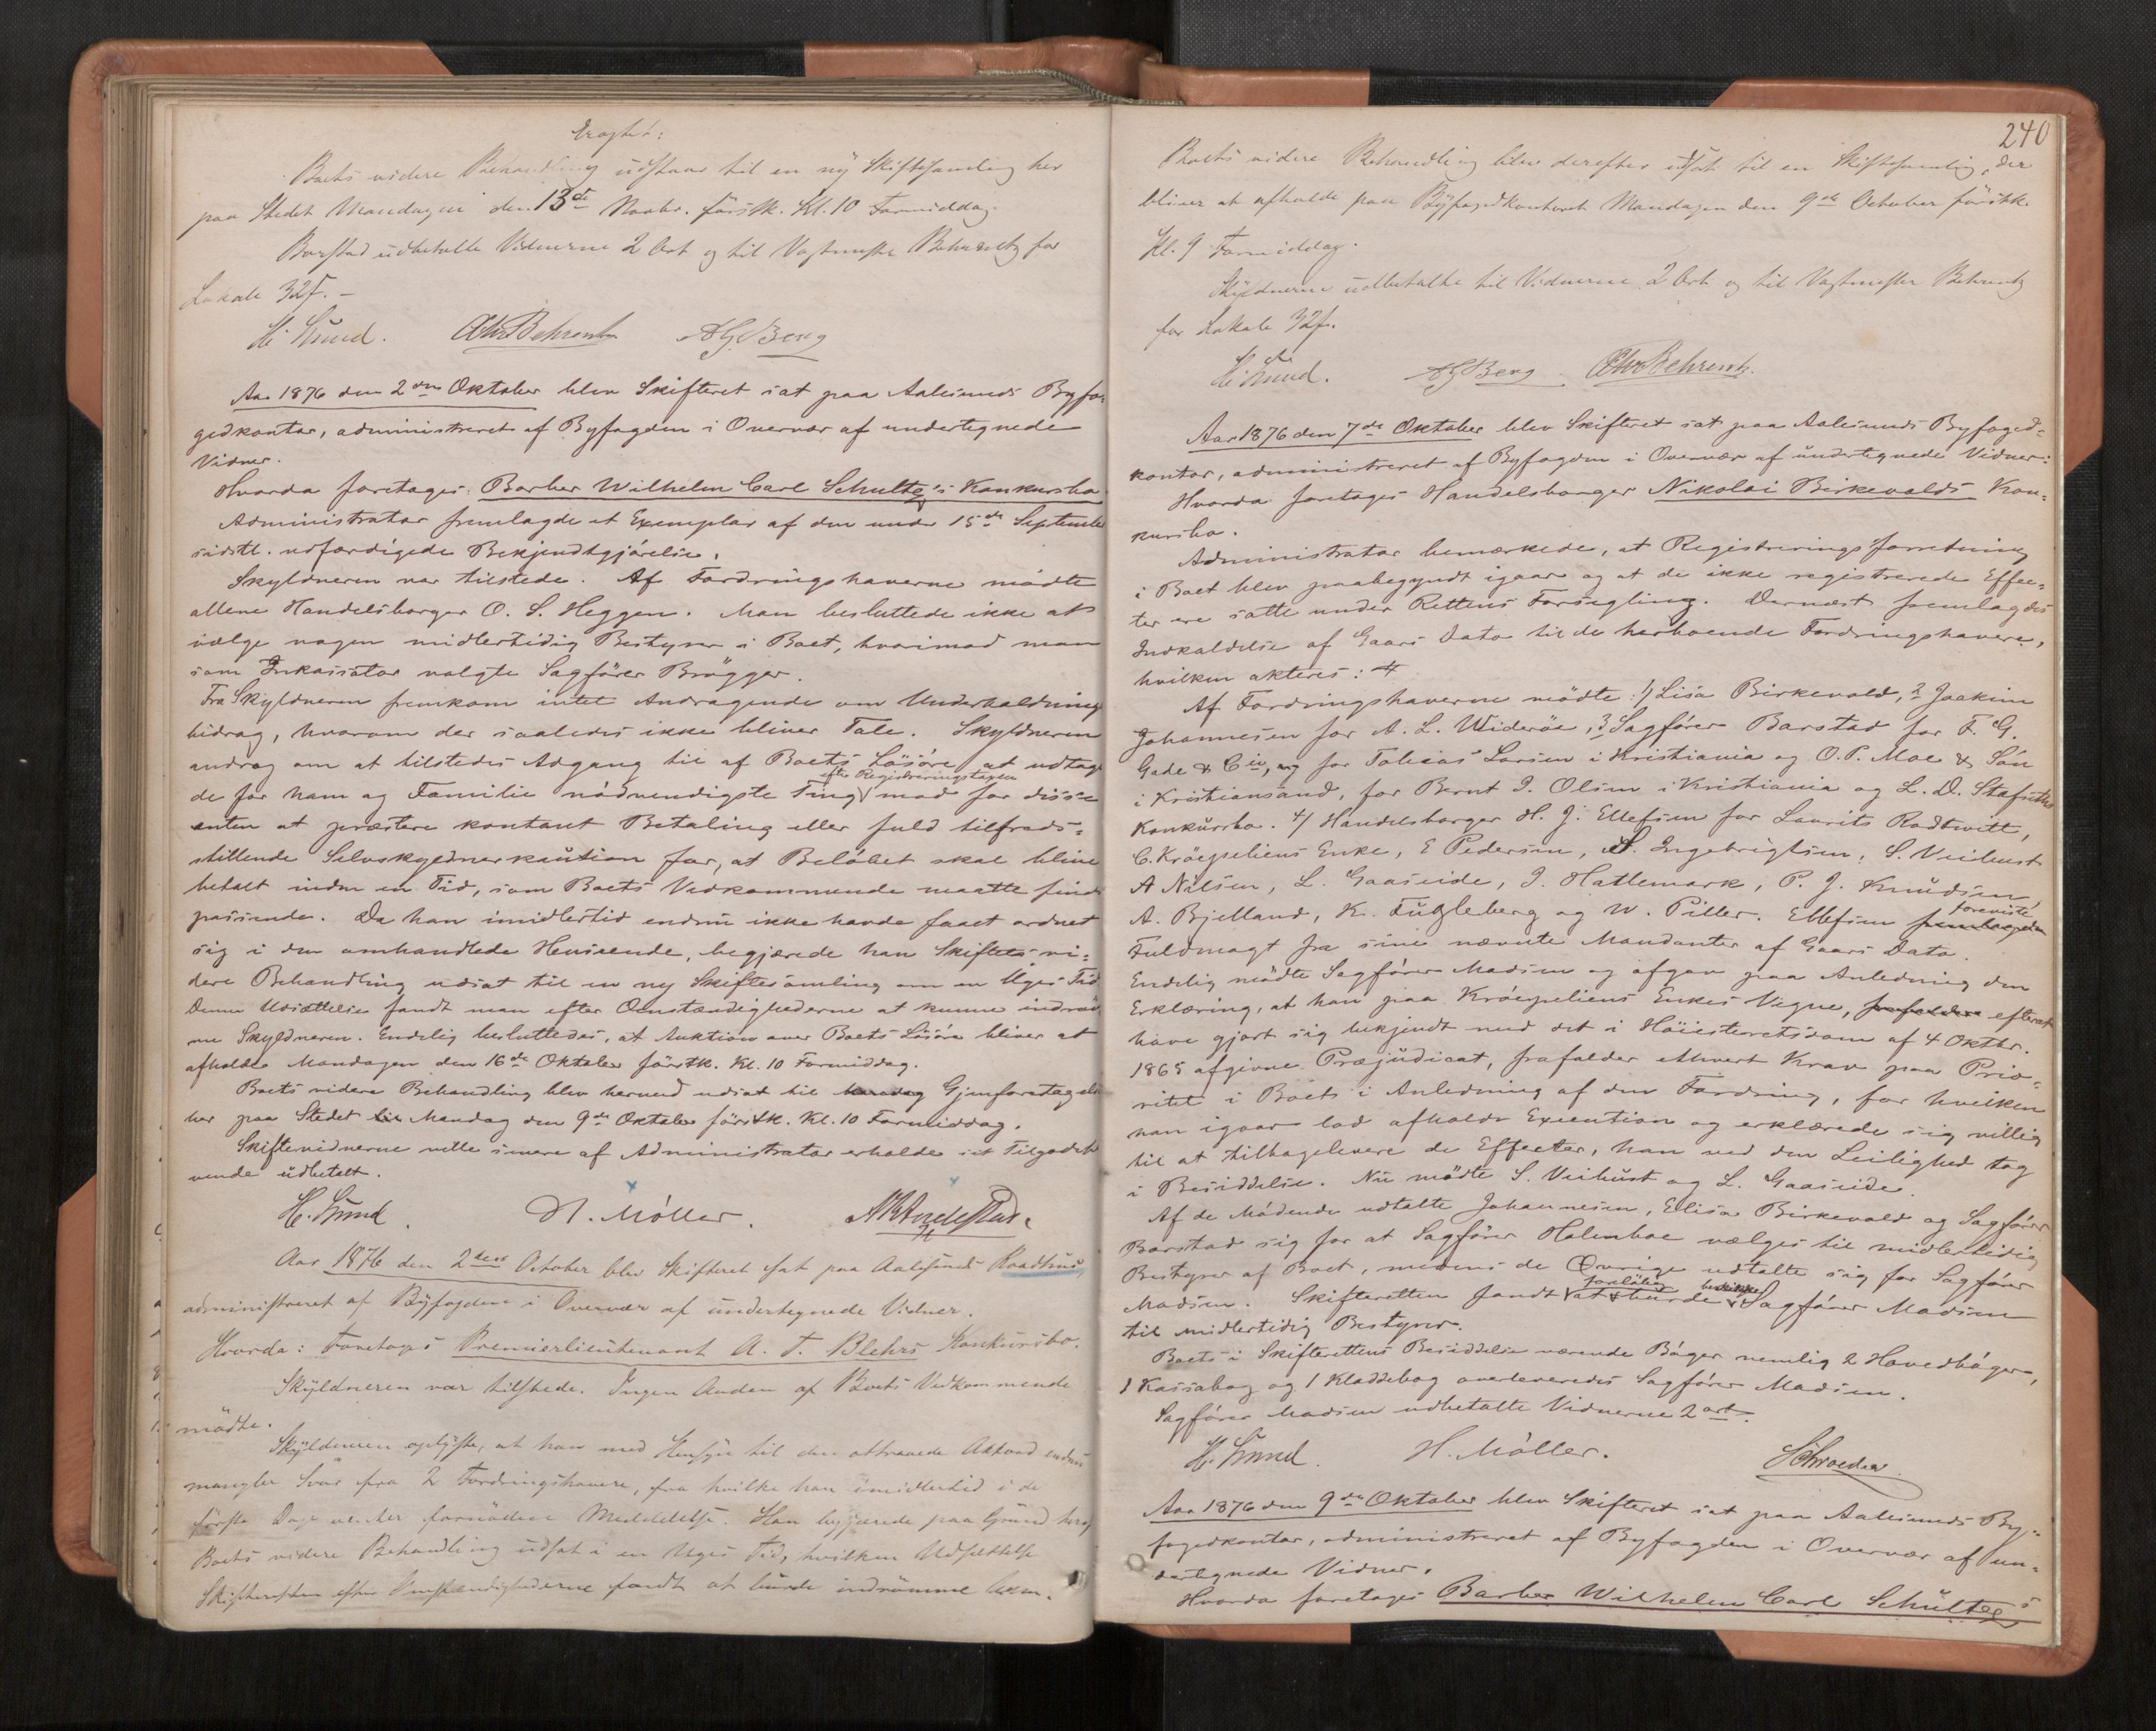 Eragtet:
Boets videre Behandling udstaar til en ny Skiftesamling her
paa Stedet Mandagen den 13de Novbr. førstk. Kl. 10 Formiddag.
Barstad udbetalte Vidnerne 2 Ort og til Vagtmester Behrentz for
Lokale 32 f. –
H. Lund. Behrentz A G Berg
Aar 1876 den 2den Oktober blev Skifteret sat paa Aalesunds Byfo-
gedkontor, administreret af Byfogden i Overvær af undertegnede
Vidner.
Hvorda foretoges: Barber Wilhelm Carl Schultz's Konkursbo.
Administrator fremlagde et Exemplar af den under 15de September
sidstl. udfærdigede Bekjendtgjørelse.
Skyldneren var tilstede. Af Fordringshaverne mødte
allene Handelsborger O. S. Heggen. Man besluttede ikke at
vælge nogen midlertidig Bestyrer i Boet, hvorimod man
som Inkassator valgte Sagfører Brøgger.
Fra Skyldneren fremkom intet Andragende om Underholdnings
bidrag, hvorom der saaledes ikke bliver Tale. Skyldneren
androg om at tilstedes Adgang til af Boets Løsøre at udtage
efter Registreringstaxten
de for ham og Familie nødvendigste Ting mod for disse
enten at præstere kontant Betaling eller fuld tilfreds-
stillende Selvskyldnerkaution for, at Beløbet skal blive
betalt inden en Tid, som Boets Vedkommende maatte finde
passende. Da han imidlertid endnu ikke havde faaet ordnet
sig i den omhandlede Henseende, begjærede han Skiftets vi-
dere Behandling udsat til en ny Skiftesamling om en Uges Tid
Denne Udsættelse fandt man efter Omstændighederne at kunne indrøm
me Skyldneren. Endelig besluttedes, at Auktion over Boets Løsøre bliver at
afholde Mandagen den 16de Oktober førstk. Kl. 10 Formiddag.
Boets videre Behandling blev herved udsat til Gjenforetagelse
her paa Stedet Mandag den 9de Oktober førstk. Kl. 10 Formiddag.
Skiftevidnerne ville senere af Administrator erholde sit Tilgodeha
vende udbetalt.
H. Lund. H. Møller.
Aar 1876 den 2den October blev Skifteret sat paa Aalesunds Raadhus,
administreret af Byfogden i Overvær af undertegnede Vidner.
Hvorda: Foretoges Premierlieutenant A. T. Blehrs Konkursbo.
Skyldneren var tilstede. Ingen Anden af Boets Vedkommende
mødte.
Skyldneren oplyste, at han med Hensyn til den attraaede Akkord endnu
mangler Svar fra 2 Fordringshavere, fra hvilke han imidlertid i de
første Dage venter fornøden Meddelelse. Han begjærede paa Grund heraf
Boets videre Behandling udsat i en Uges Tid, hvilken Udsættelse
Skifteretten efter Omstændighederne fandt at burde indrømme ham.
240
Boets videre Behandling blev derefter udsat til en Skiftesamling, der
bliver at afholde paa Byfogedkontoret Mandagen den 9de October førstk.
Kl. 9 Formiddag.
Skyldnerne udbetalte til Vidnerne 2 Ort og til Vagtmester Behrentz
for Lokale 32 f.
H. Lund. A G Berg. Behrentz.
Aar 1876 den 7de Oktober blev Skifteret sat paa Aalesunds Byfoged-
kontor, administreret af Byfogden i Overvær af undertegnede Vidner:
Hvorda foretoges Handelsborger Nikolai Birkevolds Kon-
kursbo.
Administrator bemærkede, at Registreringsforretning
i Boet blev paabegyndt igaar og at de ikke registrerede Effec-
ter ere satte under Rettens Forsegling. Dernæst fremlagdes
Indkaldelse af Gaars Dato til de herboende Fordringshavere,
hvilken akteres: #
Af Fordringshaverne mødte: 1/ Lisa Birkevold, 2 Joakim
Johannesen for A. L. Widerøe, 3 Sagfører Barstad for F. G.
Gade & Cie, og for Tobias Larsen i Kristiania og O. P. Moe & Søn
i Kristiansand, for Bernt I. Olsen i Kristiania og L. D. Stafseths
Konkursbo. 4/ Handelsborger H. J. Ellefsen for Laurits Rodtwitt,
C. Krøepeliens Enke, E Pedersen, S. Ingebrigtsen, S. Veibust
A Nilsen, L. Gaaseide, I. Hatlemark, P. J. Knudsen,
A. Bjelland, K. Fugleberg og W. Piller. Ellefsen foreviste
Fuldmagt fra sine nævnte Mandanter af Gaars Dato.
Endelig mødte Sagfører Madsen og afgav paa Anledning den
Erklæring, at han paa Krøepeliens Enkes Vegne, frafalder efterat
have gjort sig bekjendt med det i Høiesteretsdom af 4 Oktbr.
1865 afgivne Præjudicat, frafalder ethvert Krav paa Prio-
ritet i Boets i Anledning af den Fordring, for hvilken
han igaar lod afholde Execution og erklærede sig villig
til at tilbagelevere de Effecter, han ved den Leilighed tog
i Besiddelse. Nu mødte S. Veibust og L. Gaaseide.
Af de Mødende udtalte Johannesen, Elisa Birkevold og Sagfører
Barstad sig for at Sagfører Holmboe vælges til midlertidig
Bestyrer af Boet, medens de Øvrige udtalte sig for Sagfører
foreløbig beskikke
Madsen. Skifteretten fandt at burde Sagfører Madsen
til midlertidig Bestyrer.
Boets i Skifterettens Besiddelse værende Bøger nemlig 2 Hovedbøger,
1 Kassabog og 1 Kladdebog overleveredes Sagfører Madsen.
Sagfører Madsen udbetalte Vidnerne 2 ort.
H. Lund. H. Møller. Schrøder.
Aar 1876 den 9de Oktober blev Skifteret sat paa Aalesunds By-
fogedkontor, administreret af Byfogden i Overvær af un-
dertegnede Vidner.
Hvorda foretoges Barber Wilhelm Carl Schultz's